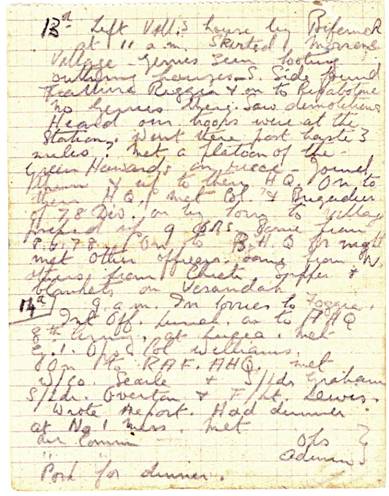 13th Left Vall's house by Bifernok
at 11 a.m. Skirted Morrone
Village - Gerries seen looting
outlying houses. S. Side found
Ruggia & on to Ripabotoni
no Gerries there. Saw demolitions
Heard our troops were at the
Station. Went there post haste 3
miles. Met a platoon of the
Green Howards in - Joined
them & up to their HQ. On to
their H.Q. Met Col. & Brigadier
of 78 Div. on by lorry to village
8 & 78. On to B.H.Q for night
met other officers. Same from N.
others from Chieti. Supper &
blankets on Verandah.
14th 9 a.m. In lorries to Foggia.
Int Off. on to AHQ
8th Army, at Lucera. Met
G.1. Ops Col Williams.
On to RAF. AHQ. Met
W/Co. Searle & S/Ldr Graham
S/Ldr. Overton & F/Lt. Lewis.
Wrote Report. Had dinner
at No 1 Mess. Met
Air Comm Ops
Admin
"Pork" for dinner.